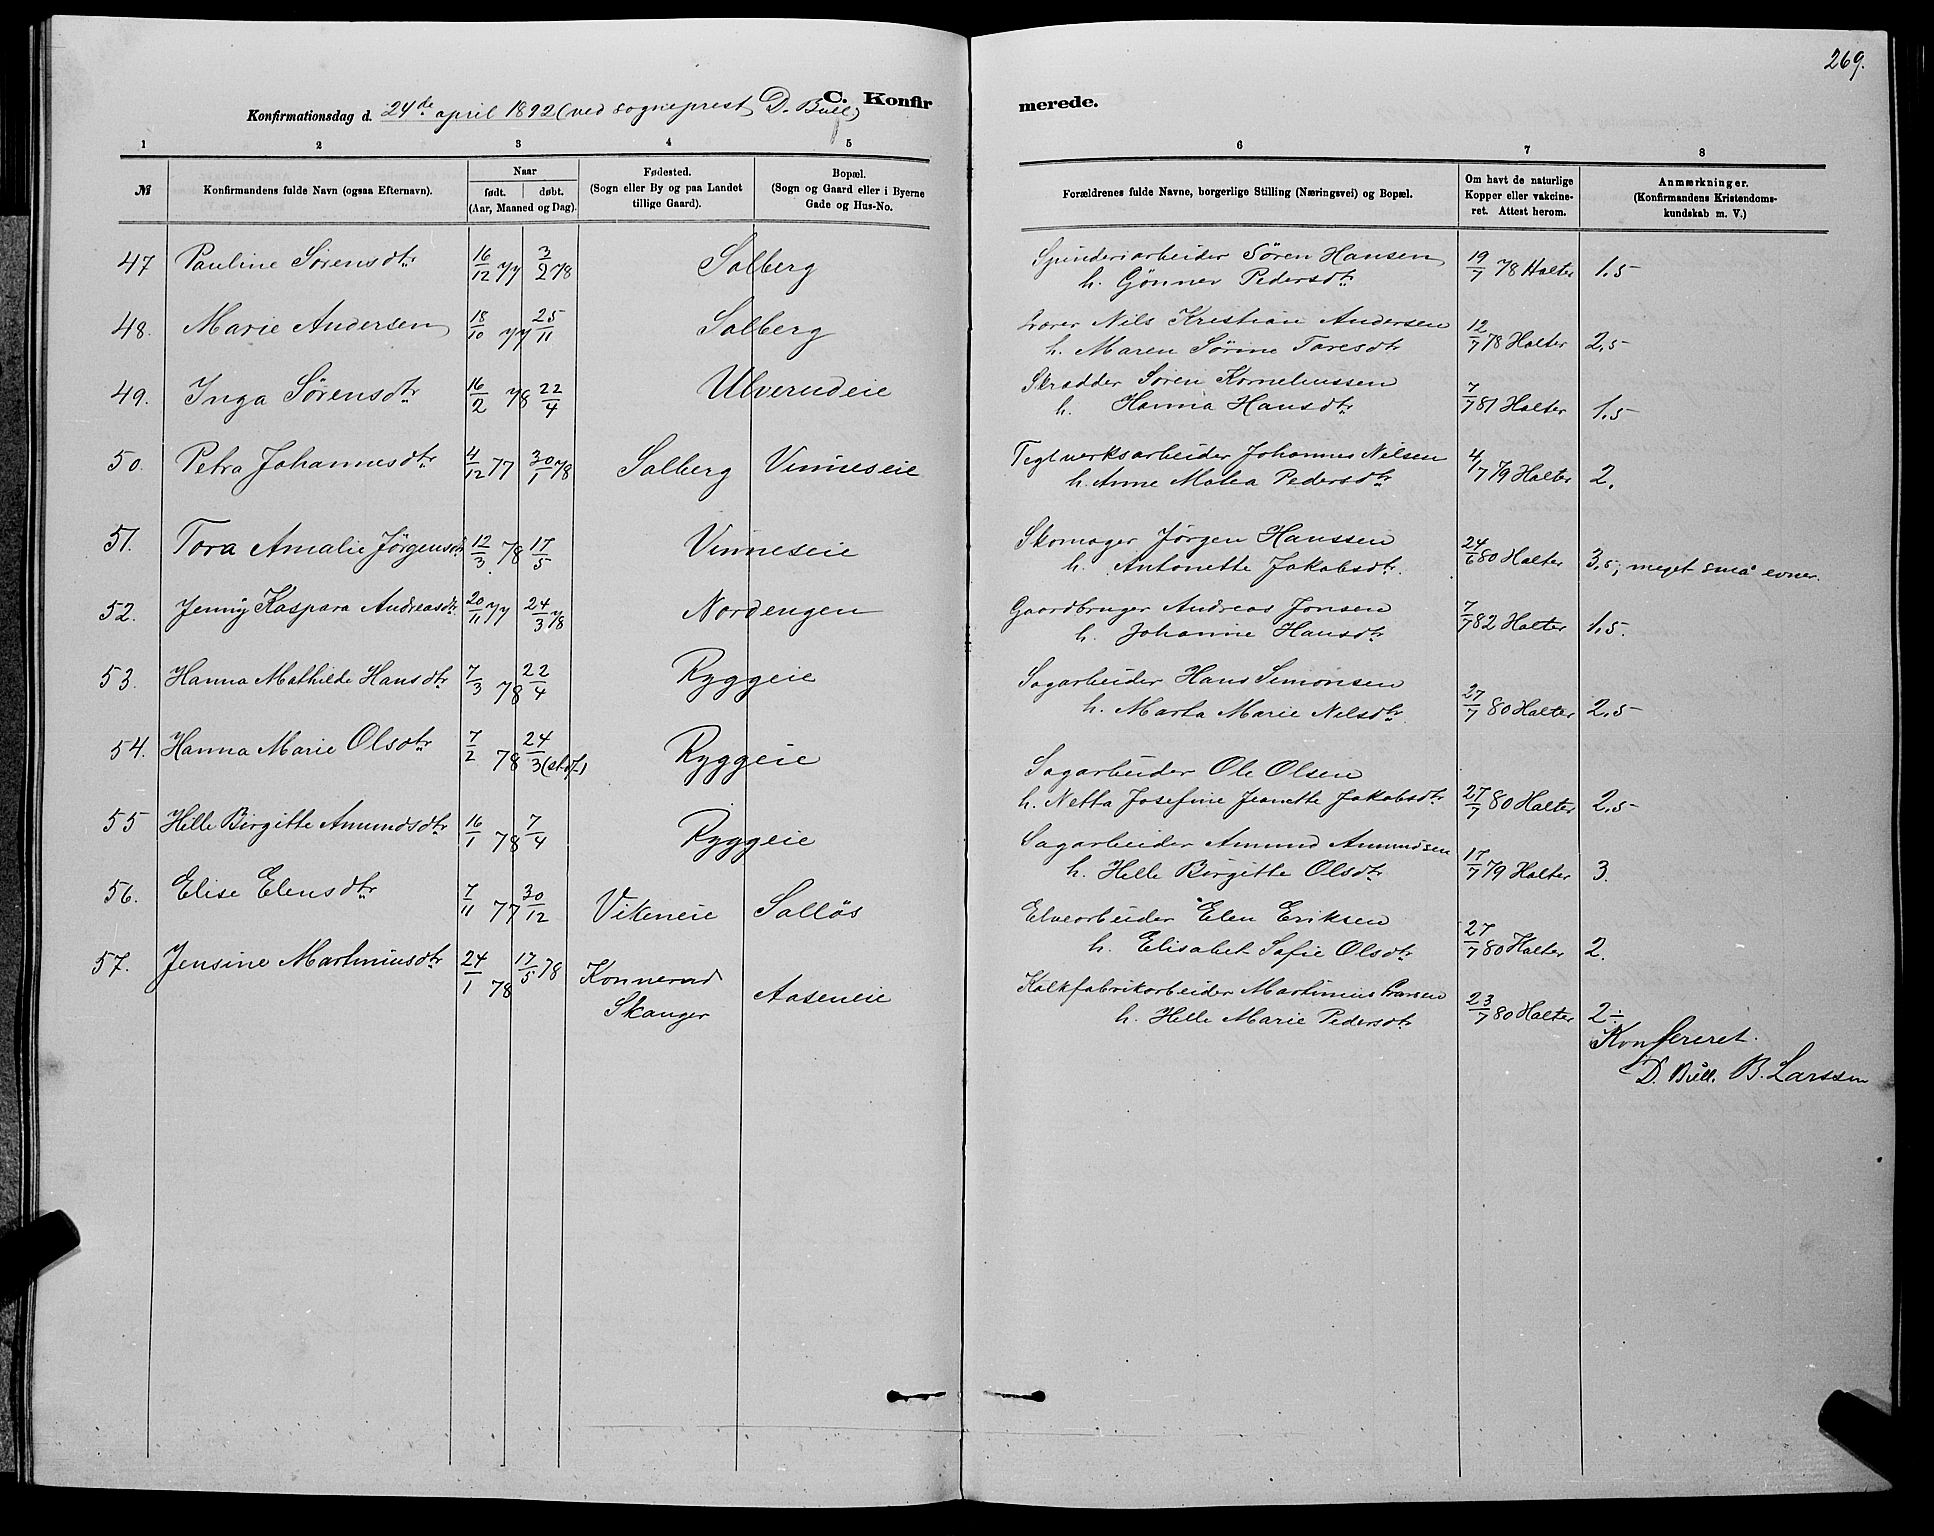 269.
C. Konfirmerede.
Konfirmationsdag d. 24de april 1892 (ved sogneprest D. Bull)
1 2 3 4 5 6 7 8
№ Konfirmandens fulde Navn (ogsaa Efternavn). Naar født. døbt. (Aar, Maaned og Dag). Fødested. (Sogn eller By og paa Landet tillige Gaard). Bopæl. (Sogn og Gaard eller i Byerne Gade og Hus-No. Forældrenes fulde Navne, borgerlige Stilling (Næringsvei) og Bopæl. Om havt de naturlige Kopper eller vakcineret. Attest herom. Anmærkninger. (Konfirmandens Kristendomskundskab m. V.)
47 Pauline Sørensdtr 16/12 77 3/2 78 Solberg Spinderiarbeider Sören Hansen 19/7 78 Holter 1,5
h. Gönner Pedersdtr
48. Marie Andersen 18/10 77 25/11 Solberg Lærer Nils Kristian Andersen 12/7 78 Holter 2,5
h. Maren Sørine Taresdtr
49. Inga Sørensdtr 16/2 78 22/4 Ulverudeie Skrædder Sören Korneliussen 7/7 81 Holter 1,5
h. Hanna Hansdtr
50. Petra Johannesdtr 4/12 77 30/1 78 Solberg Vinneseie Teglverksarbeider Johannes Nilsen 4/7 79 Holter 2.
h. Anne Malea Pedersdtr
51. Tora Amalie Jørgensdtr 12/3 78 17/5 Vinneseie Skomager Jörgen Hanssen 24/6 80 Holter 3,5; meget små evner.
h. Antonette Jakobsdtr.
52. Jenny Kaspara Andreasdtr 20/11 77 24/3 78 Nordengen Gaardbruger Andreas Jonsen 7/7 82 Holter 1,5.
h. Johanne Hansdtr
53. Hanna Mathilde Hansdtr 7/3 78 22/4 Ryggeie Sagarbeider Hans Simonsen 27/7 80 Holter 2,5
h. Marta Marie Nilsdtr.
54. Hanna Marie Olsdtr 7/2 78 24/3 Ryggeie Sagarbeider Ole Olsen 27/7 80 Holter 2,5
h. Netta Josefine Jeanette Jakobsdtr
55 Helle Birgitte Amundsdtr 16/1 78 7/4 Ryggeie Sagarbeider Amund Amundsen 17/7 79 Holter 3.
h. Helle Birgitte Olsdtr
56. Elise Elensdtr 7/11 77 30/12 Vikeneie Solløs Elvearbeider Elen Eriksen 27/7 80 Holter 2.
h. Elisabet Sofie Olsdtr
57. Jensine Martiniusdtr 24/1 78 17/5 78 Konnerud Skanger Aaseneie Kalkfabrikarbeider Martinius 23/7 80 Holter 2÷
h. Helle Marie Pedersdtr
Konfereret.
D. Bull. B. Larssen